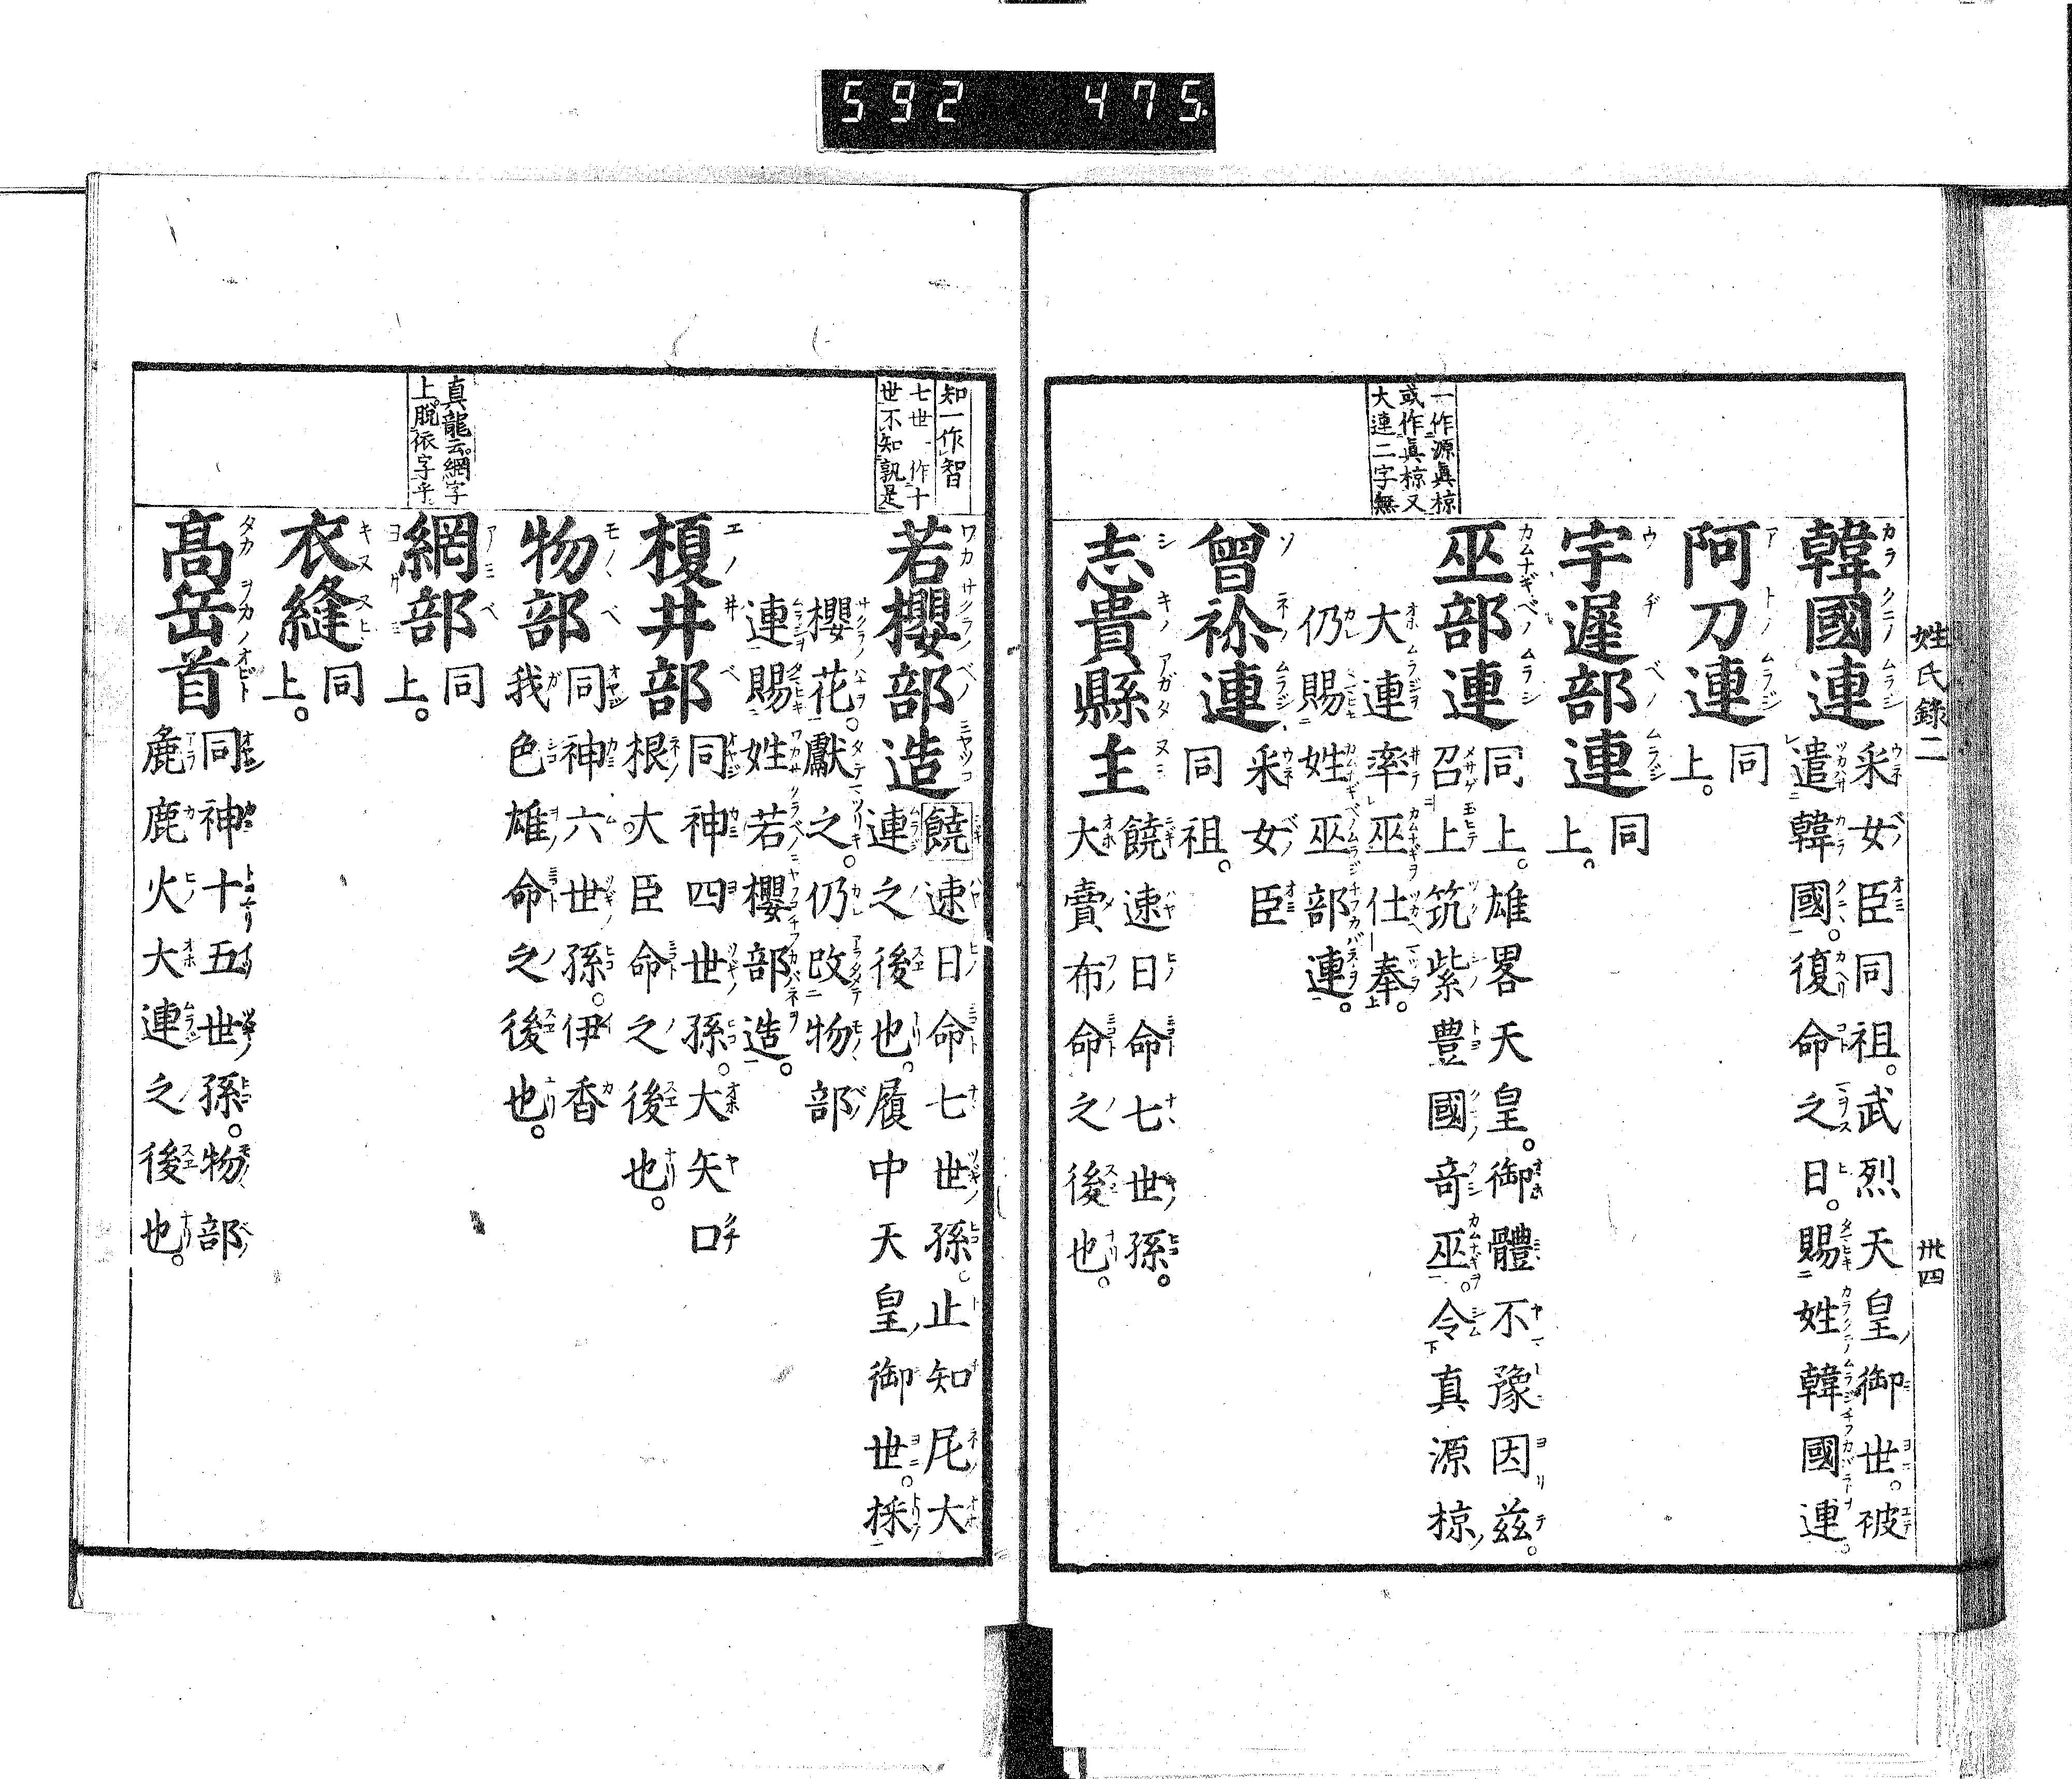 592 475
姓氏錄二
卅四
一作源眞椋
或作眞椋又
大連二字無
韓國連
采女臣同祖。武烈天皇御世。被
遣韓國。復命之日。賜姓韓國連。
阿刀連
同
上。
宇遲部連
同
上。
巫部連
同上。雄畧天皇。御體不豫因茲。
召上筑紫豊國奇巫。令真源椋
大連率巫仕奉。
仍賜姓巫部連。
曾祢連
采女臣
同祖。
志貴縣主
饒速日命七世孫。
大賣布命之後也。
知一作智
七世一作十
世不知孰是
若櫻部造
饒速日命七世孫。止知尼大
連之後也。履中天皇御世。採
櫻花。獻之。仍改物部
連賜姓若櫻部造。
榎井部
同神四世孫。大矢口
根大臣命之後也。
物部
同神六世孫。伊香
我色雄命之後也。
真龍云。網字
上。脫依字乎
網部
同
上。
衣縫
同
上。
髙岳首
同神十五世孫。物部
麁鹿火大連之後也。